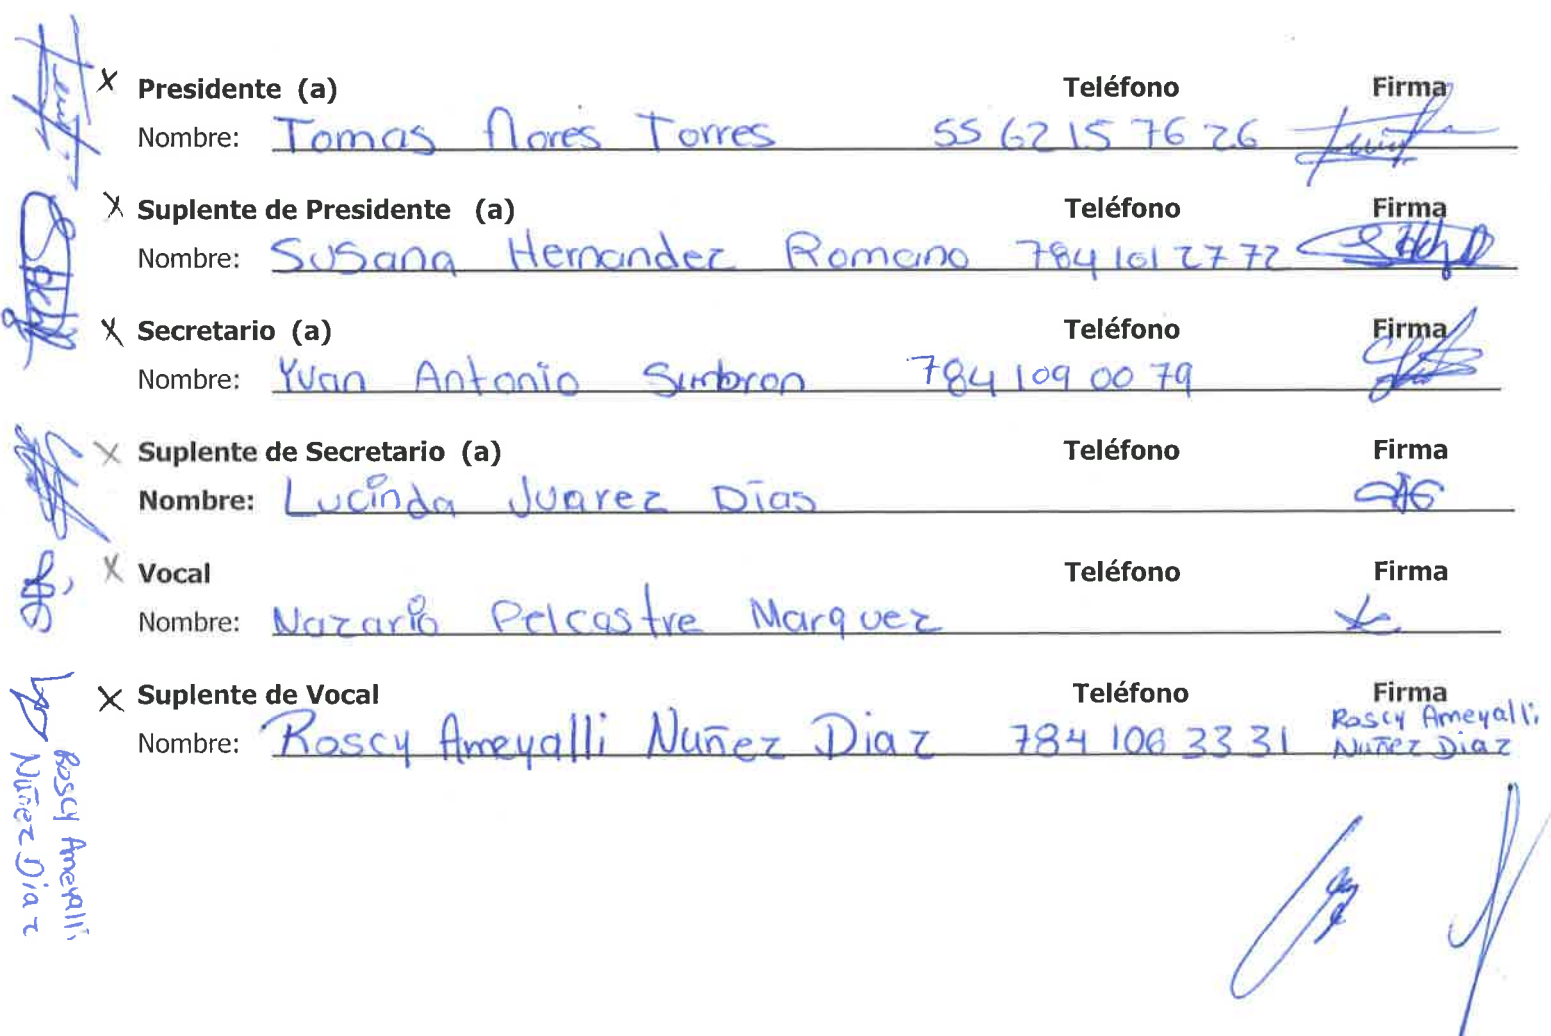 X Presidente (a) Teléfono Firma
Nombre: Tomas flores Torres 55 62 15 76 26
X Suplente de Presidente (a) Teléfono Firma
Nombre: Susana Hernandez Romano 784 101 27 72
X Secretario (a) Teléfono Firma
Nombre: Yvan Antonio Simbron 784 109 00 79
X Suplente de Secretario (a) Teléfono Firma
Nombre: Lucinda Juarez Dias
X Vocal Teléfono Firma
Nombre: Nazario Pelcastre Marquez
X Suplente de Vocal Teléfono Firma
Nombre: Roscy Ameyalli Nuñez Diaz 784 106 33 31 Roscy Ameyalli
Nuñez Diaz
Roscy Ameyalli
Nuñez Diaz